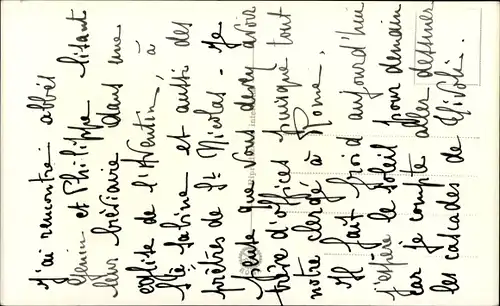 J'ai rencontré abbés
Genin et Philippe lisant
leur bréviaire dans une
eglise de l'Aventin, à
Ste Sabine et aussi des
prêtres de St Nicolas - Je
pense que vous devez avoir
très d'offices puisque tout
notre clergé à Rome.
Il fait froid aujourd'hui
j'espère le soleil pour demain
car je compte aller dessiner
les cascades de Tivoli.